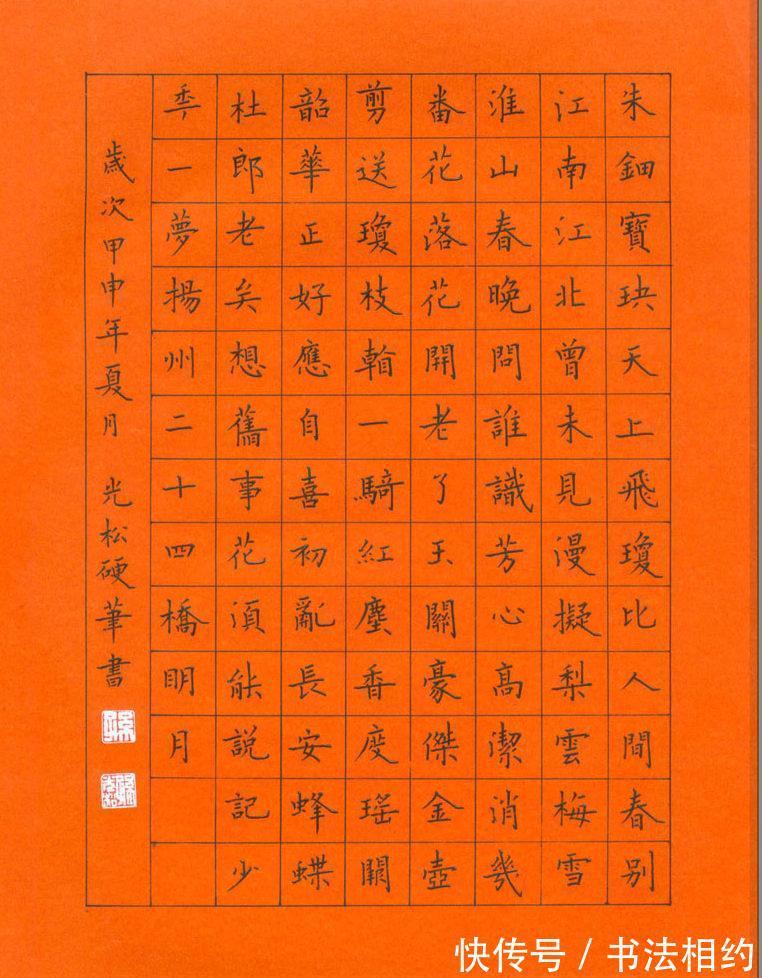 朱鈿寶玦天上飛瓊比人間春別
江南江北曾未見漫擬梨雲梅雪
淮山春晚問誰識芳心高潔消幾
番花落花開老了玉關豪傑金壺
剪送瓊枝看一騎紅塵香度瑤闕
韶華正好應自喜初亂長安蜂蝶
杜郎老矣想舊事花須能說記少
秊一夢揚州二十四橋明月
歲次甲申年夏月 光松硬筆書
快传号 / 书法相约